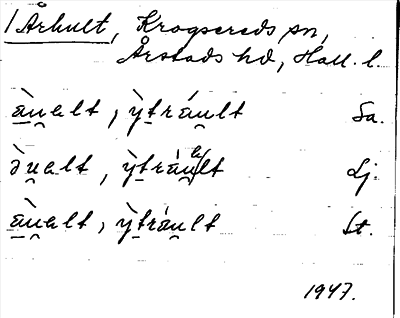 / Århult, Krogsereds sn,
Årstads hd, Hall. l.
a᷆u̯alt, y̆̀tráu̯lt Sa.
ò̯u̯alt, ỳtráu̯lt Lj.
àu̯alt, ỳtráu̯lt St.
1947.